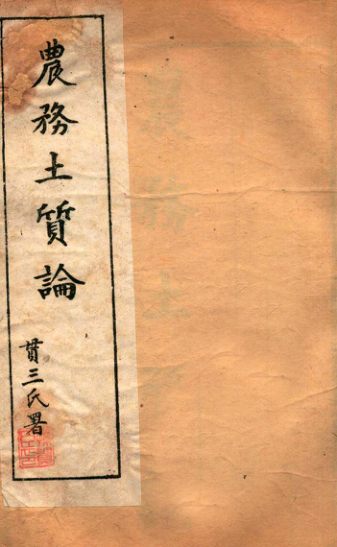 農務土質論
貫三氏署